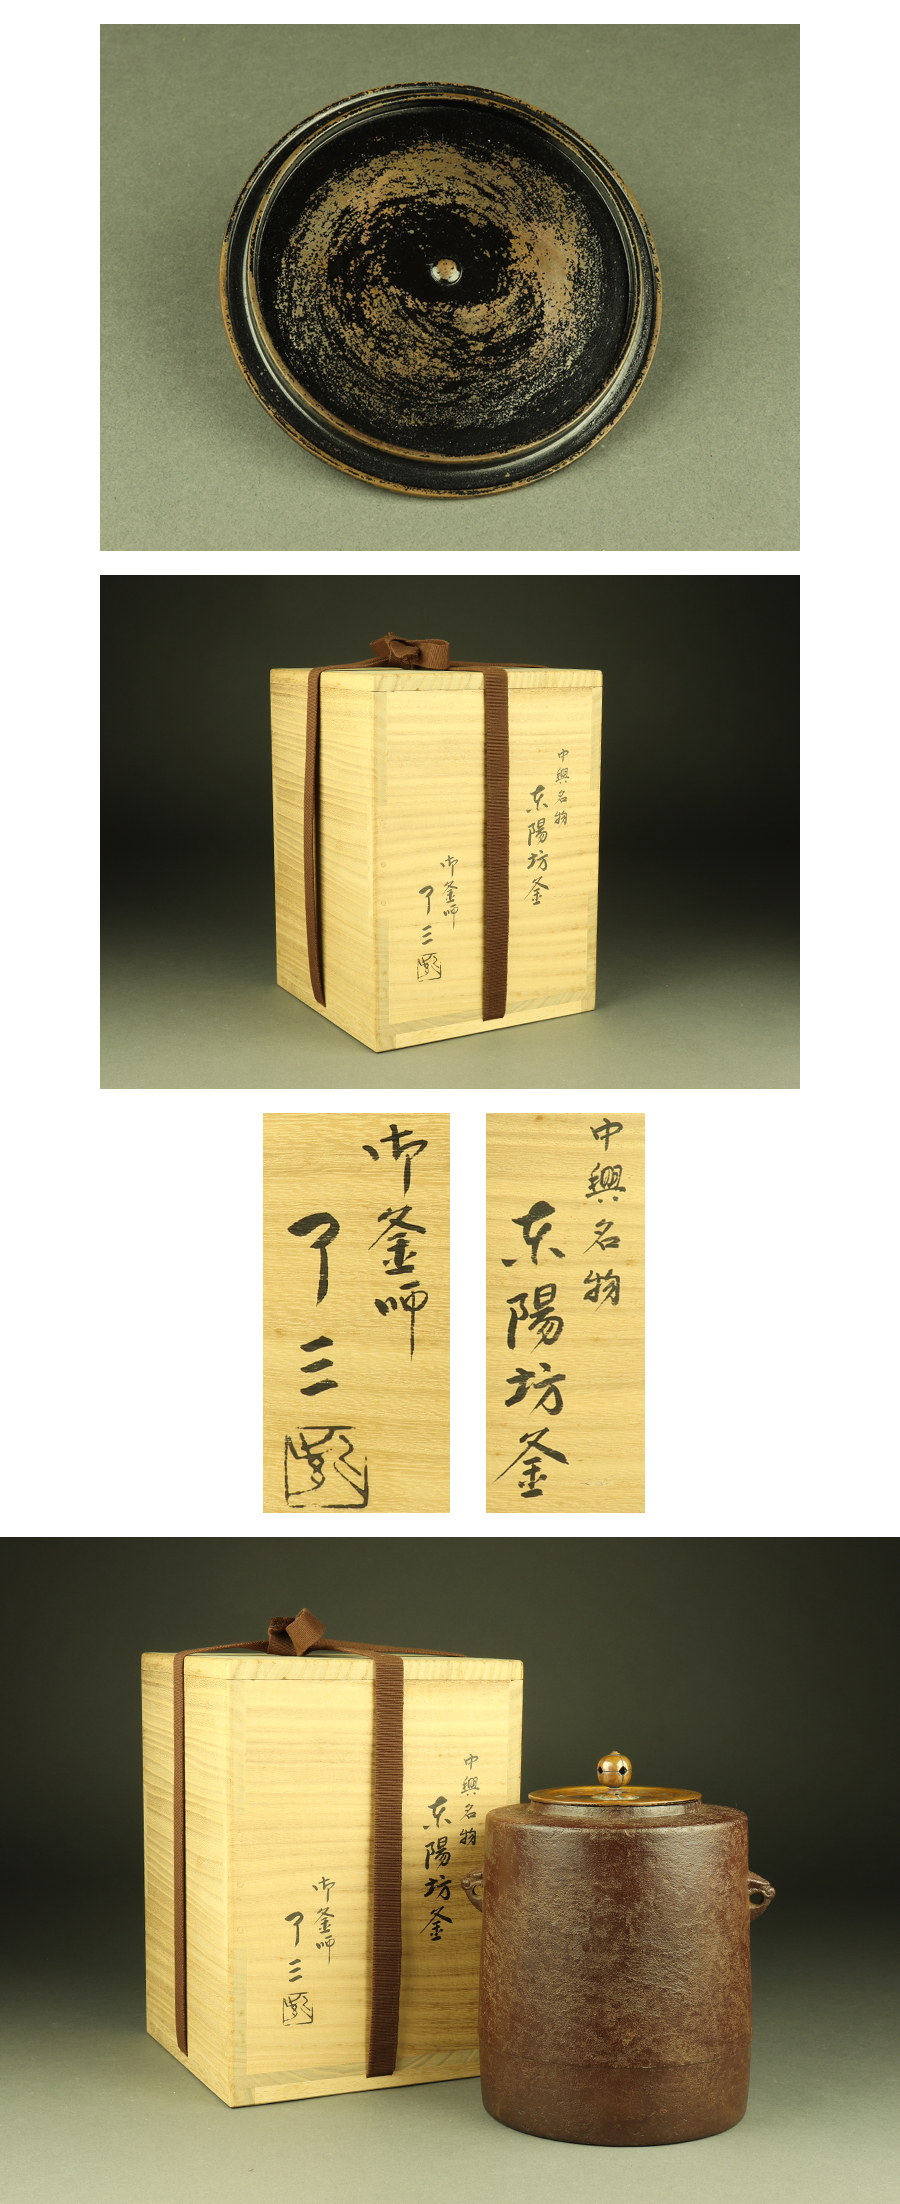 中興名物
东陽坊釜
御釜師
了三
御釜師
了三
中興名物
东陽坊釜
中興名物
东陽坊釜
御釜師
了三